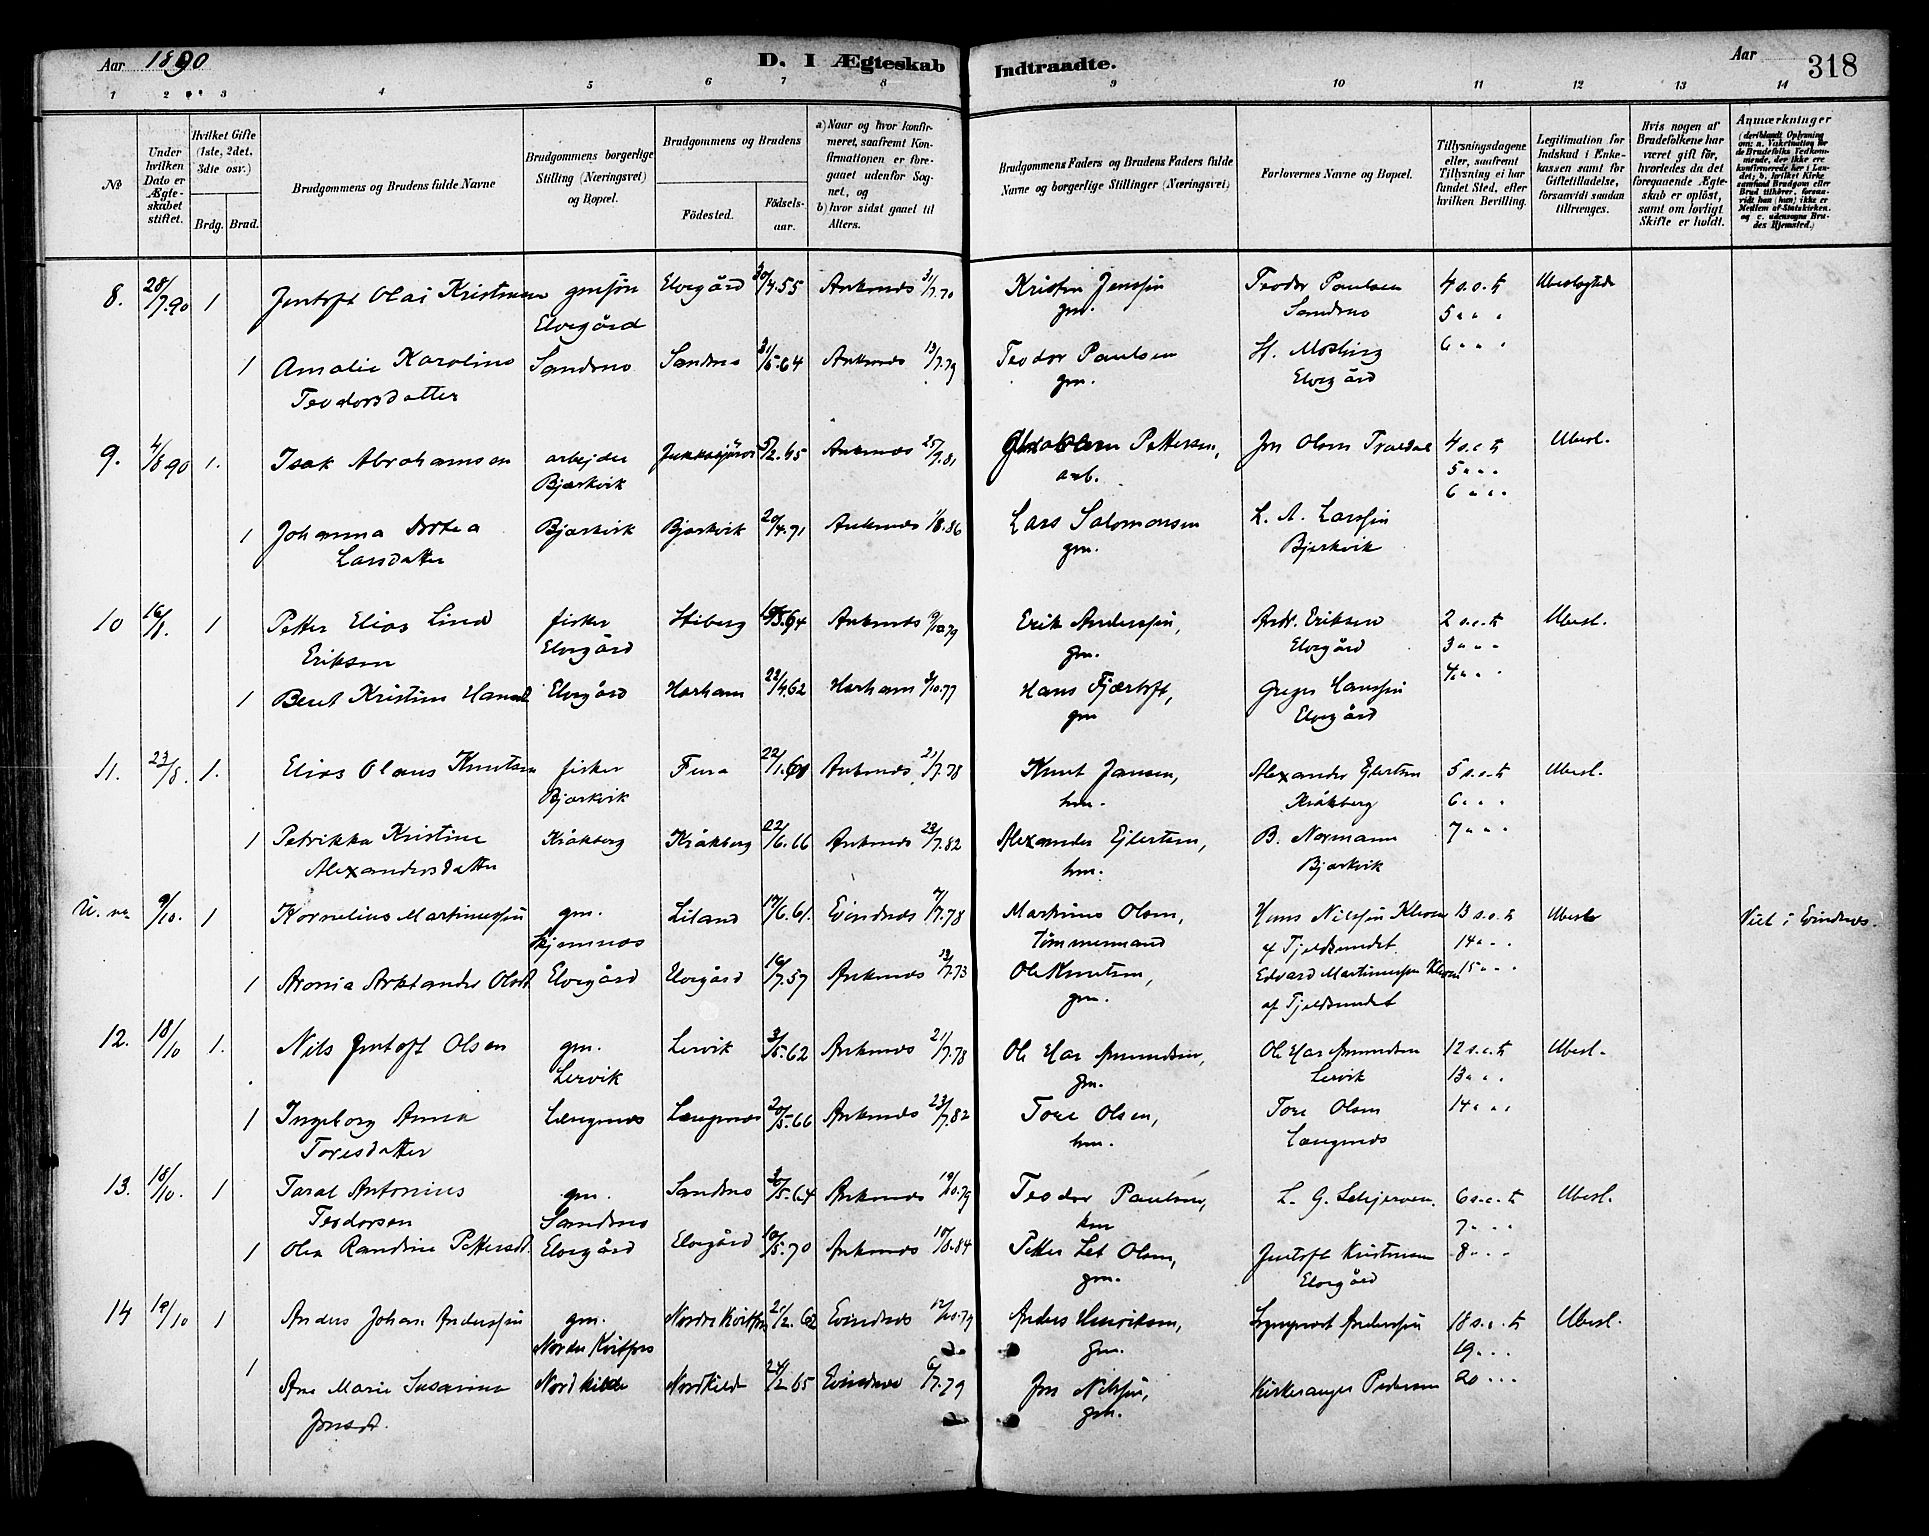 Aar 1890
D. I Ægteskab Indtraadte.
Aar
318
1 2 3 4 5 6 7 8 9 10 11 12 13 14
No
Under hvilken Dato er Ægteskabet stiftet.
Hvilket Gifte (1ste, 2det, 3die osv.)
Brdg. Brud.
Brudgommens og Brudens fulde Navne
Brudgommens borgerlige Stilling (Næringsvei) og Bopæl.
Brudgommens og Brudens
Fødested.
Fødselsaar.
a) Naar og hvor konfirmeret, saafremt Konfirmationen er foregaaet udenfor Sognet, og
b) hvor sidst gaaet til Alters.
Brudgommens Faders og Brudens Faders fulde Navne og borgerlige Stillinger (Næringsvei)
Forlovernes Navne og Bopæl.
Tillysningsdagene eller, saafremt Tillysning ei har fundet Sted, efter hvilken Bevilling.
Legitimation for Indskud i Enkekassen samt for Giftetilladelse, forsaavidt saadan tiltrænges.
Hvis nogen af Brudefolkene har været gift før, hvorledes da det foregaaende Ægteskab er opløst, samt om lovligt Skifte er holdt.
Anmærkninger
8. 28/7.90 1 Jentoft Olai Kristensen gmsøn Elvegård 30/4.55 Ankenes 31/7.70 Kristen Jenssen Teodor Paulsen 4 s.e.t. Ubeslægtede
Elvegård gm. Sandmo 5 " "
1 Amalie Karoline Sandmo Sandmo 31/5.64 Ankenes 13/7.79 Teodor Paulsen H. Mosling 6 " "
Teodorsdatter gm. Elvegård
9. 4/8 90 1. Isak Abrahamsen arbejder Jukkasjärvi 5/2.65 Ankenes 25/9.81 Pettersen, Jon Olsen Traldal 4 s.e.t. Ubesl.
Bjærkvik arb. 5 " "
6 " "
1 Johanna Dortea Bjærkvik Bjærkvik 20/4.71 Ankenes 1/8.86 Lars Salomonsen L. A. Larssen
Larsdatter gm. Bjerkvik
10 16/ 1 Petter Elias Lind fisker Stiberg Ankenes 9/10.79 Erik Anderssen, Andr. Eriksen 2 s.e.t. Ubesl.
Eriksen Elvegård gm. Elvegård 3 " "
1 Berit Kristine Hansd. Elvegård Harham 22/4.62 Harham 10.77 Hans Fjærtoft, Greger Hanssen 4 " "
gm Elvegård
11. 23/8. 1. Elias Olaus Knutsen fisker Fura 22/1.60 Ankenes 21/7.78 Knut Jansen, Alexander Ejlertsen 5 s.e.t. Ubesl.
Bjærkvik hm. Kråkberg 6 " "
1 Petrikka Kristine Kråkberg Kråkberg 22/6.66 Ankenes 23/7.82 Alexander Ejlertsen, B. Normann 7 " "
Alexandersdatter hm. Bjærkvik
U. nr 9/10. 1 Kornelius Martinussen gm. Liland 17/6.61. Evindnes 7/7.78 Martinus Olsen, Hans Nilssen Kleven 13 s.e.t. Ubesl. Viet i Evindnes.
Skjomnæs Tømmermand af Tjeldsundet 14 " "
1 Aronia Olsd. Elvegård Elvegård 16/7.57 Ankenes 13/7.73 Ole Knutsen, Edvard Martinussen Kleven 15 " "
gm. af Tjeldsundet
12. 18/10 1. Nils Jentoft Olsen gm. Lervik 3/5.62 Ankenes 21/7.78 Ole Har Amundsen, Ole Har Amundsen 12 s.e.t. Ubesl.
Lervik gm. Lervik 13 " "
1 Ingeborg Anna Længnæs Længnæs 20/5.66 Ankenes 23/7.82 Tore Olsen, Tore Olsen 14 " "
Toresdatter hm. Længnæs
13. 18/10. 1 Taral Antonius gm. Sandmo 30/5.64 Ankenes 19/10.79 Teodor Paulsen, L. G. 6 s.e.t. Ubesl.
Teodorsen Sandmo 7 " "
1 Olea Randine Pettersd. Elvegård Elvegård 10/5.70 Ankenes Petter Olsen, Jentoft Kristensen 8 " "
gm. Elvegård
14 19/10 1 Anders Johan Anderssen gm. Nordre Kvitfors 21/2.62 Evindnes 12/10.79 Anders Henriksen, Anderssen 18 s.e.t. Ubesl.
Nordre Kvitfors gm. 19 " "
1 Ane Marie Susanne Nordkilde Nordkilde 24/2.65 Evindnes 6/7.79 Jon Nilssen, Kirkesanger Pedersen 20 " "
Jonsd. gm.